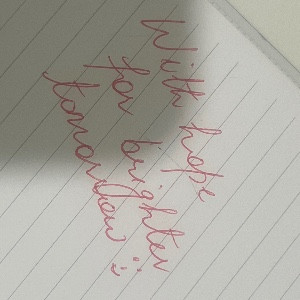 With hope
for brighter
tomorrow :)